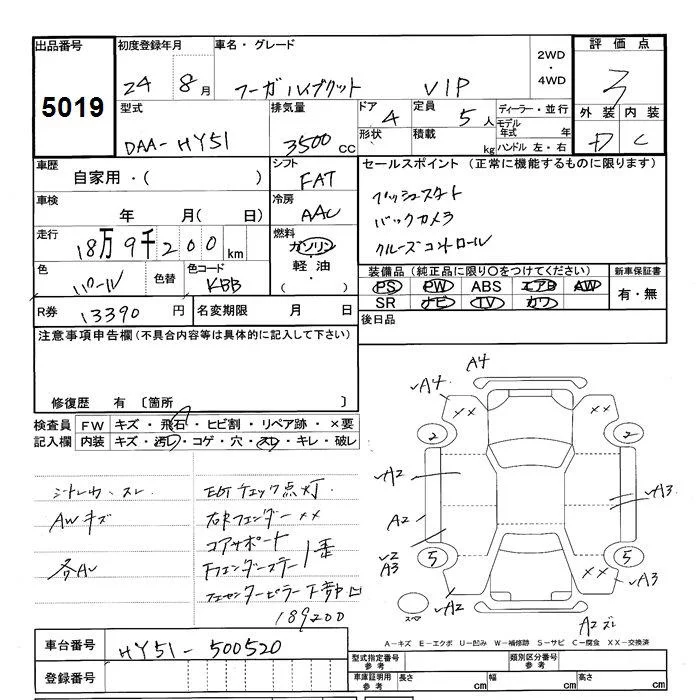 出品番号 初度登録年月 車名・グレード 2WD・4WD 評価点
5019 24 8月 フーガハイブリット VIP 3
型式 排気量 ドア 定員 ディーラー・並行 外装 内装
DAA-HY51 3500cc 4 5人 モデル年式 年 D C
形状 積載 kg ハンドル 左・右
車歴 シフト セールスポイント (正常に機能するものに限ります)
自家用・( ) FAT
プッシュスタート
車検 冷房
年 月( 日) AAC
バックカメラ
走行 燃料
18万9千200km ガソリン・軽油・( )
クルーズコントロール
色 色替 色コード
パール KBB
装備品 (純正品に限り○をつけてください) 新車保証書
PS PW ABS エアB AW 有・無
SR ナビ TV カワ
R券 13390円 名変期限 月 日
後日品
注意事項申告欄(不具合内容等は具体的に記入して下さい)
修復歴 有 〔箇所 〕
検査員記入欄 FW キズ・飛石・ヒビ割・リペア跡・×要
内装 キズ・汚レ・コゲ・穴・スレ・キレ・破レ
シートレカ・スレ EGチェック点灯
AWキズ 右Rフェンダー××
コアサポート
各AU Fフェンダーステー 1番
下部凹
189200
A4
A4 ×× ××
2 2
A2
A2 A3
2
A3 5 5
×× A3
A2
スペア A2ズレ
A-キズ E-エクボ U-凹み W-補修跡 S-サビ C-腐食 XX-交換済
車台番号 HY51-500520
登録番号
型式指定番号 参考 類別区分番号 参考
車庫証明用 参考 長さ cm 幅 cm 高さ cm